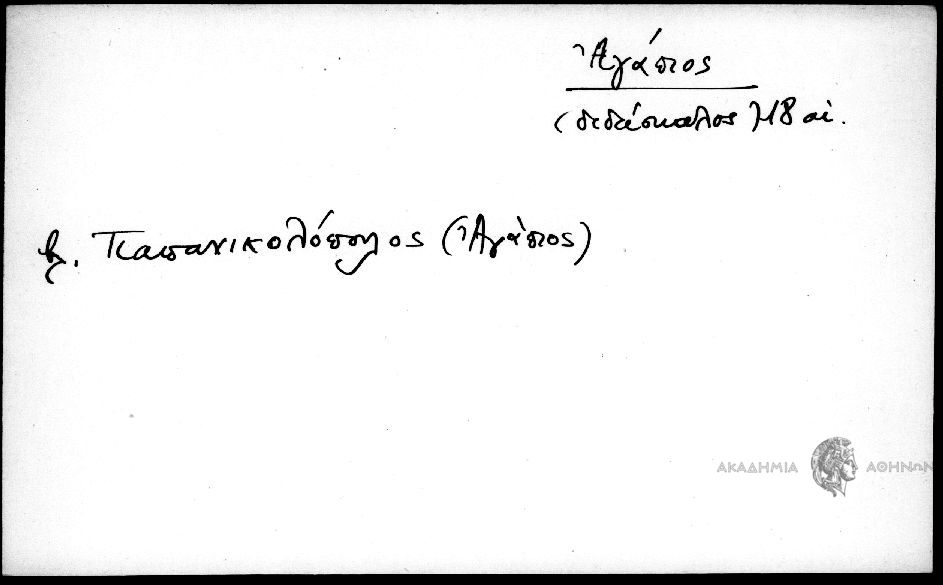 Ἀγάπιος
(διδάσκαλος) 18 αἰ.
βλ. Παπανικολόπουλος (Ἀγάπιος)
ΑΚΑΔΗΜΙΑ ΑΘΗΝΩΝ